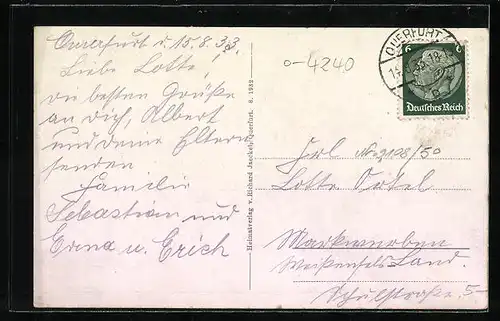 Querfurt d. 15.8.33.
Liebe Lotte!
die besten Grüße
an dich, Albert
und deine Eltern
senden
Familie
Sebastian und
Erna u. Erich
Heimatverlag v. Richard Jaeckel, Querfurt. 8. 1932
o-4240
QUERFURT
6 6
Deutsches Reich
Frl.
Lotte Örtel
Markwerben
Weißenfels Land.
Schulstraße 5